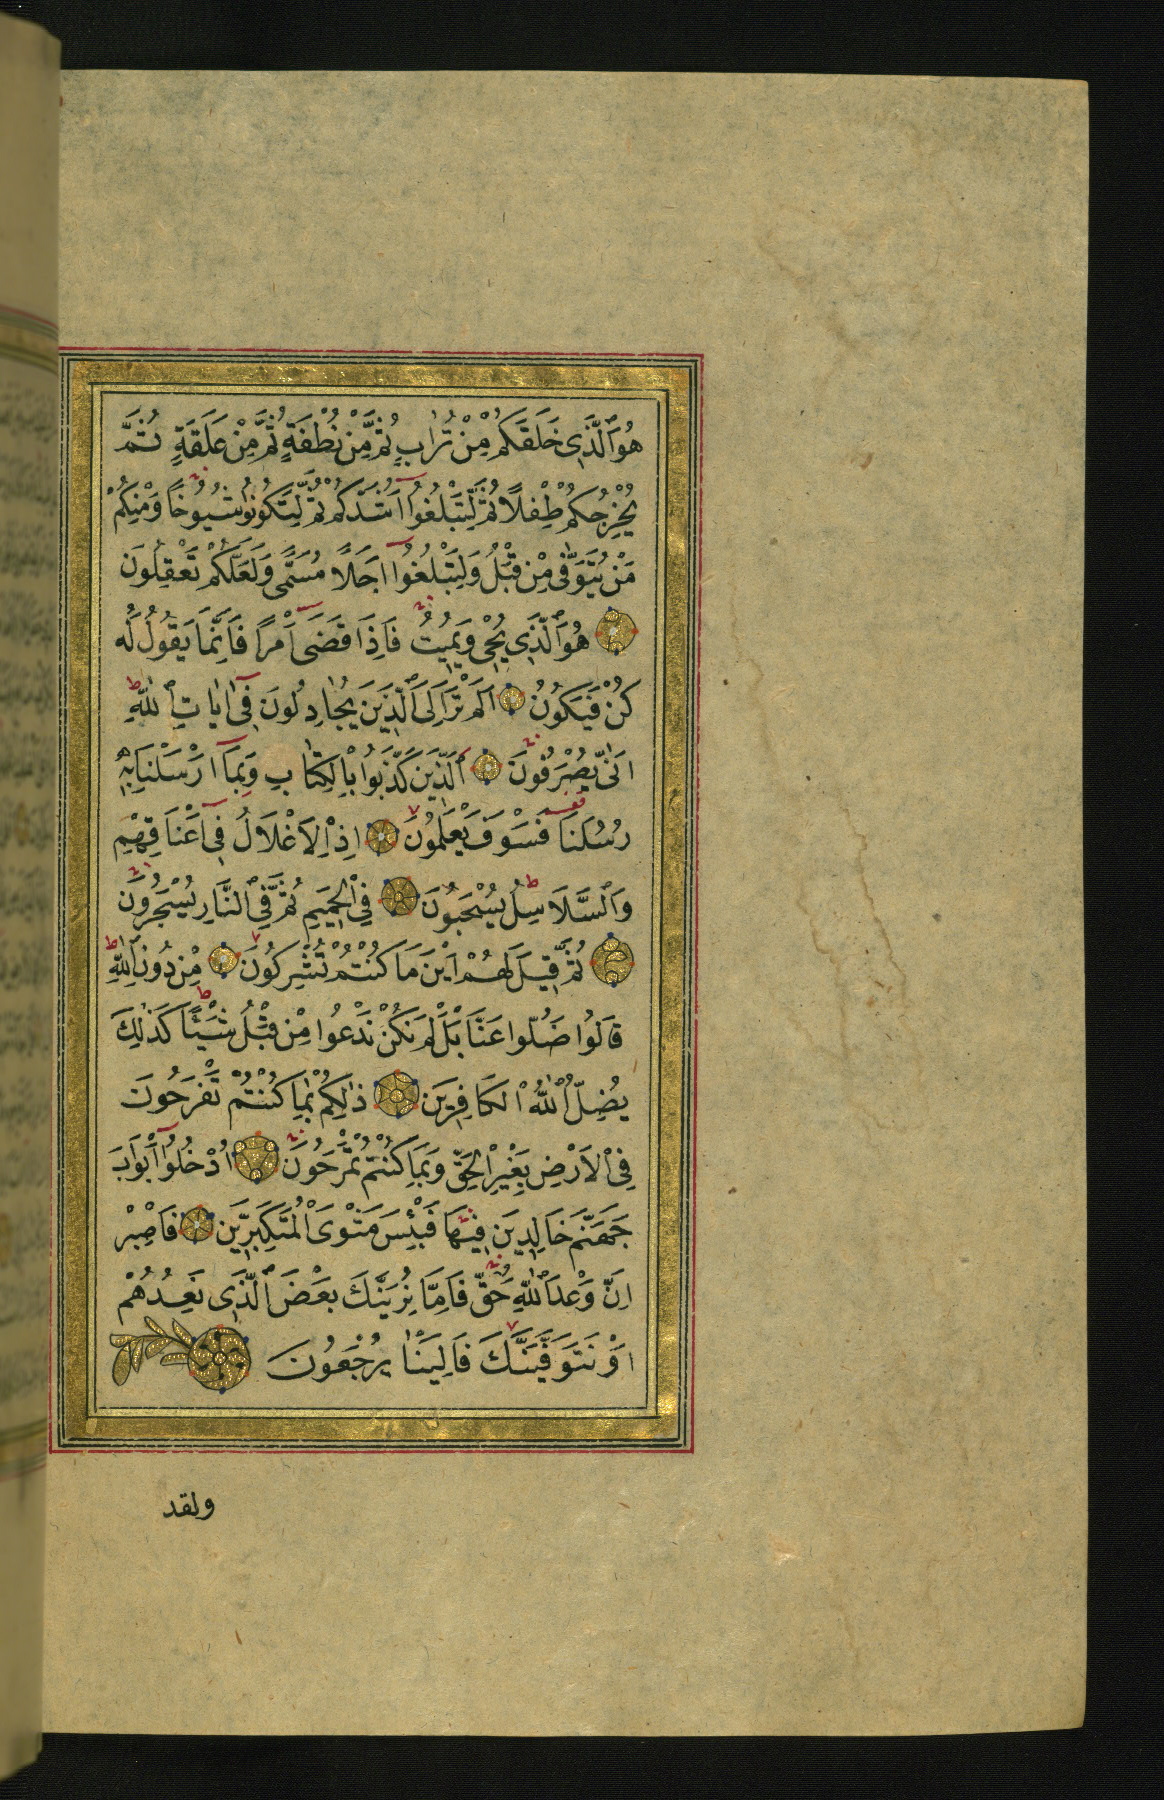 هُوَ ٱلَّذِى خَلَقَكُمْ مِنْ تُرَابٍ ثُمَّ مِنْ نُطْفَةٍ ثُمَّ مِنْ عَلَقَةٍ ثُمَّ
يُخْرِجُكُمْ طِفْلًا ثُمَّ لِتَبْلُغُوٓا اَشُدَّكُمْ ثُمَّ لِتَكُونُوا شُيُوخًا وَمِنْكُمْ
مَنْ يُتَوَفّٰى مِنْ قَبْلُ وَلِتَبْلُغُوٓا اَجَلًا مُسَمًّى وَلَعَلَّكُمْ تَعْقِلُونَ
هُوَ ٱلَّذِى يُحْيٖى وَيُمِيتُ فَاِذَا قَضَىٓ اَمْرًا فَاِنَّمَا يَقُولُ لَهُ
كُنْ فَيَكُونُ اَلَمْ تَرَ اِلَى ٱلَّذِينَ يُجَادِلُونَ فِىٓ اٰيَاتِ ٱللّٰهِ
اَنّٰى يُصْرَفُونَ اَلَّذِينَ كَذَّبُوا بِالْكِتَابِ وَبِمَآ اَرْسَلْنَا بِهٖ
رُسُلَنَا فَسَوْفَ يَعْلَمُونَ اِذِ الْاَغْلَالُ فِىٓ اَعْنَاقِهِمْ
وَٱلسَّلَاسِلُ يُسْحَبُونَ فِى ٱلْحَمِيمِ ثُمَّ فِى ٱلنَّارِ يُسْجَرُونَ
ثُمَّ قِيلَ لَهُمْ اَيْنَ مَا كُنْتُمْ تُشْرِكُونَ مِنْ دُونِ ٱللّٰهِ
قَالُوا ضَلُّوا عَنَّا بَلْ لَمْ نَكُنْ نَدْعُوا مِنْ قَبْلُ شَيْئًا كَذٰلِكَ
يُضِلُّ ٱللّٰهُ الْكَافِرِينَ ذٰلِكُمْ بِمَا كُنْتُمْ تَفْرَحُونَ
فِى ٱلْاَرْضِ بِغَيْرِ ٱلْحَقِّ وَبِمَا كُنْتُمْ تَمْرَحُونَ اُدْخُلُوٓا اَبْوَابَ
جَهَنَّمَ خَالِدِينَ فِيهَا فَبِئْسَ مَثْوَى ٱلْمُتَكَبِّرِينَ فَاصْبِرْ
اِنَّ وَعْدَ ٱللّٰهِ حَقٌّ فَاِمَّا نُرِيَنَّكَ بَعْضَ ٱلَّذِى نَعِدُهُمْ
اَوْ نَتَوَفَّيَنَّكَ فَاِلَيْنَا يُرْجَعُونَ
ولقد